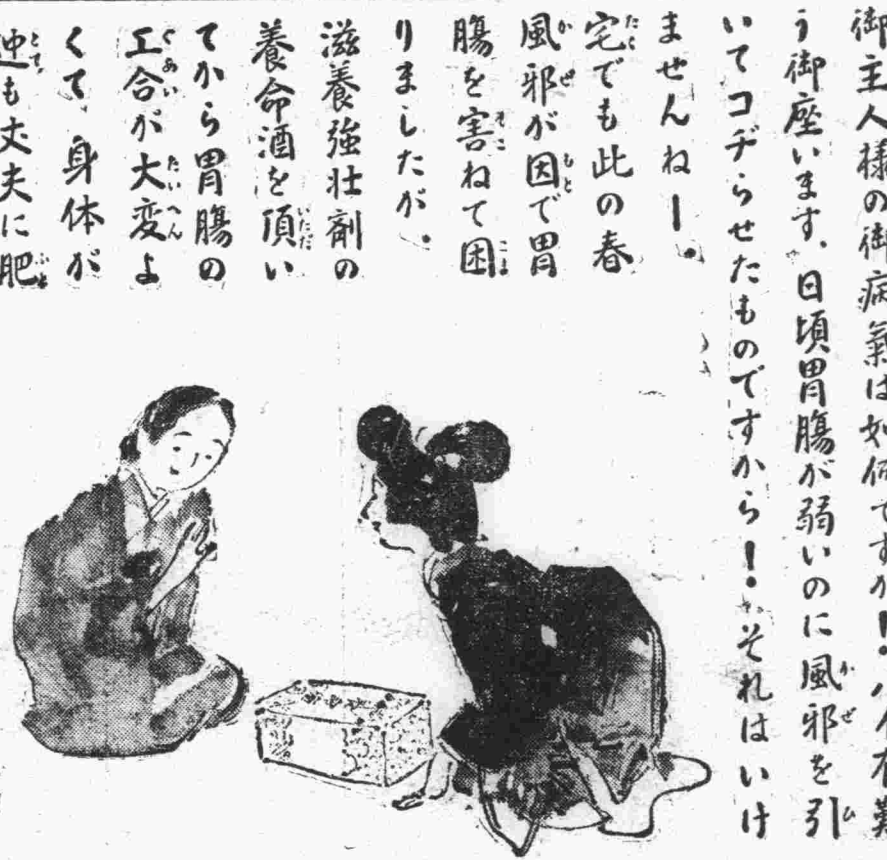 御主人様の御病氣は如何ですか！。ハイ有難
う御座います、日頃胃腸が弱いのに風邪を引
いてコヂらせたものですから！。それはいけ
ませんねー。
宅でも此の春
風邪が因で胃
腸を害ねて困
りましたが、
滋養強壮剤の
養命酒を頂い
てから胃腸の
工合が大変よ
くて、身体が
迚も丈夫に肥